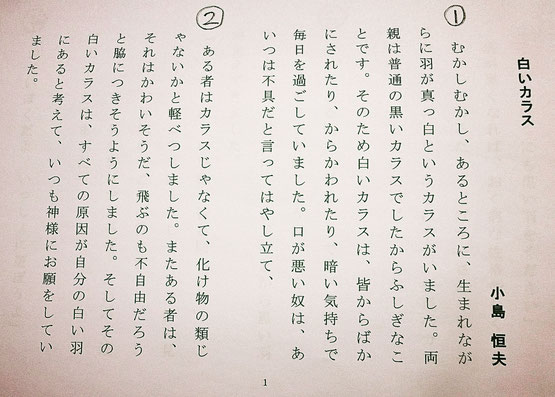 白いカラス
小島 恒夫
①
むかしむかし、あるところに、生まれなが
らに羽が真っ白というカラスがいました。両
親は普通の黒いカラスでしたからふしぎなこ
とです。そのため白いカラスは、皆からばか
にされたり、からかわれたり、暗い気持ちで
毎日を過ごしていました。口が悪い奴は、あ
いつは不具だと言ってはやし立て、
②
ある者はカラスじゃなくて、化け物の類じ
ゃないかと軽べつしました。またある者は、
それはかわいそうだ、飛ぶのも不自由だろう
と脇につきそうようにしました。そしてその
白いカラスは、すべての原因が自分の白い羽
にあると考えて、いつも神様にお願をしてい
ました。
1